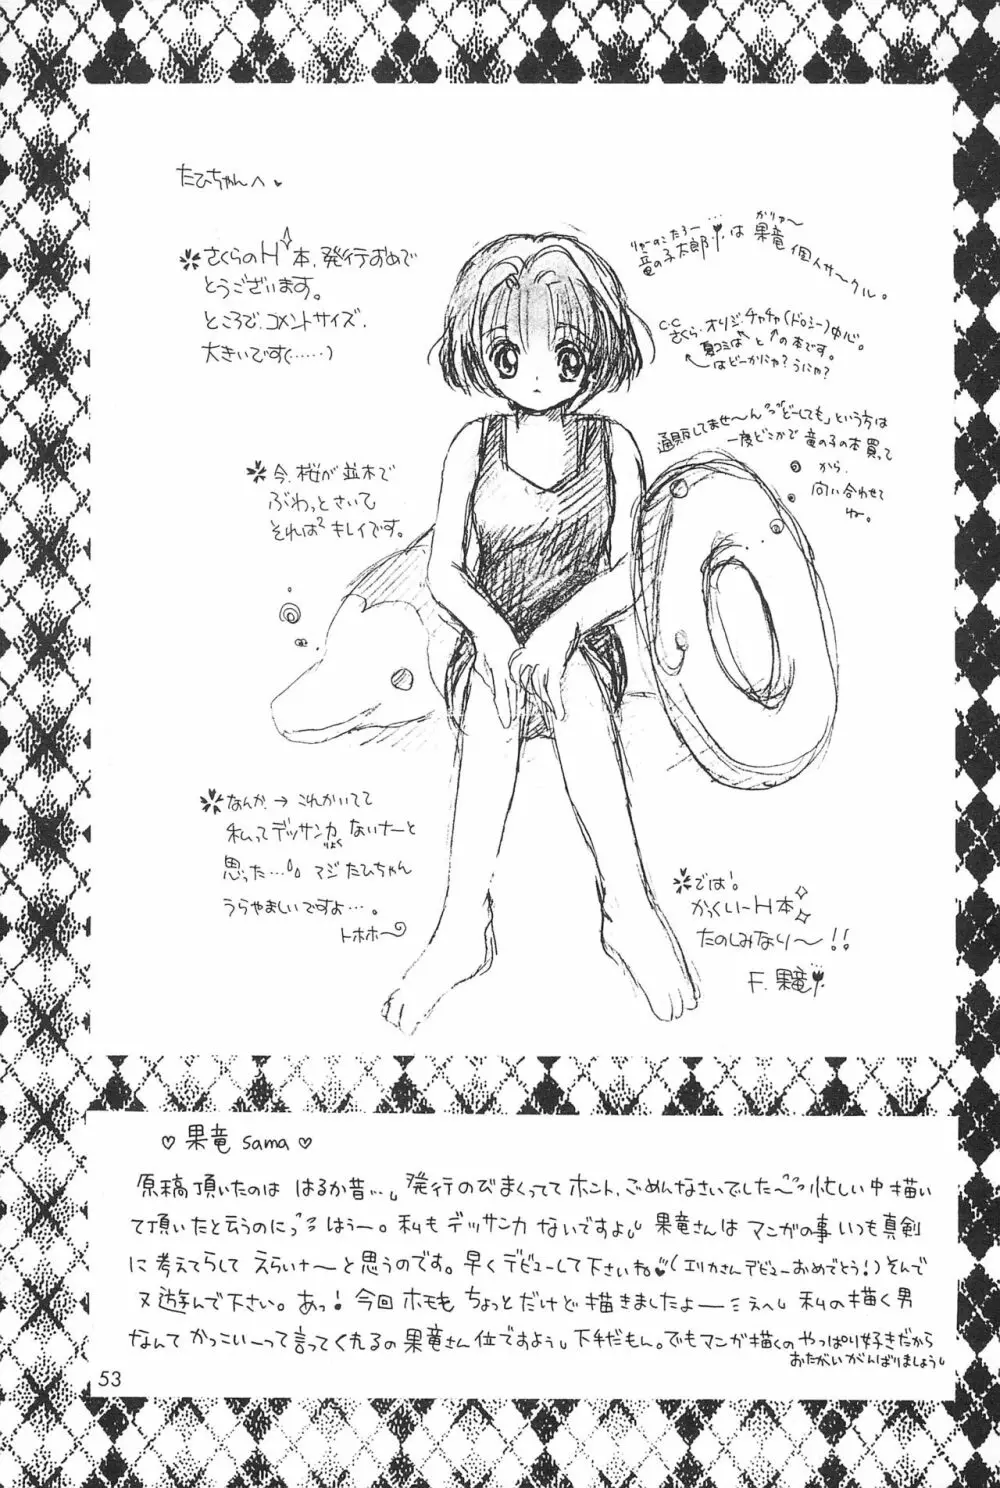 たひちゃんへ♥
さくらのH本、発行おめで
とうございます。
ところで、コメントサイズ、
大きいです(……)
りゅーのこたろー
竜の子太郎…は
かりゅ〜
果竜
個人サークル。
C.C
さくら、オリジ、チャチャ(ドロシー)中心。
夏コミは↖と↑の本です。
はどーかにゃ?うにゃ?
通販してませ〜ん "どーしても"という方は
一度どこかで竜の子の本買って
から、
問い合わせて
ね。
今、桜が並木で
ぶわっとさいて
それは² キレイです。
なんか → これかいてて
私ってデッサン力 ないナーと
りょく
思った…。マジ たひちゃん
うらやましいですよ…。
トホホ〜
では。
かっくいーH本
たのしみなり〜!!
F.果竜
♡ 果竜 sama ♡
原稿頂いたのは はるか昔…、発行のびまくってて ホント、ごめんなさいでした〜 忙しい中 描い
て頂いたと云うのに はぅー。私も デッサン力 ないですよ、果竜さんは マンガの事 いつも真剣
に 考えてらして えらいナ〜と 思うのです。早く デビューして下さいね♥(エリカさんデビューおめでとう!)そんで
又遊んで下さい。あっ! 今回 ホモも ちょっとだけど 描きましたよー ミえへ、私の描く男
なんて かっこいーって言ってくれるの果竜さん位ですよう、下手だもん。でもマンガ描くの やっぱり好きだから
おたがいがんばりましょう、
53